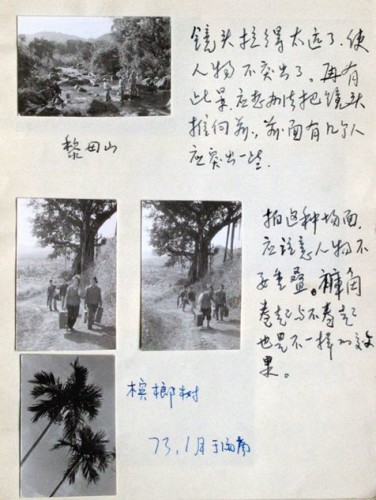 镜头拉得太远了，使
人物不突出了。再有
此景，应想办法把镜头
推向前，前面有几个人
应突出一些.
黎母山
拍这种场面，
应注意人物不
要重叠。裤角
卷起与不卷起
也是不一样的效
果。
槟榔树
73.1月于海南